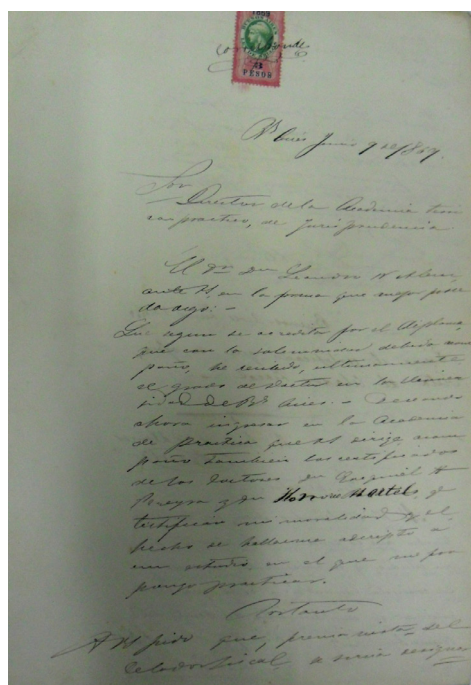 1869
25
PESOS
Corresponde
Bs. Aires Junio 9 de 1869.
Sor
Director de la Academia teori
co practica, de jurisprudencia
El Dr Dn Leandro N. Alem,
ante V.S, en la forma que mejor proce
da digo: -
Que segun se acredita por el diploma,
que con la solemnidad debida acom
paño, he recibido, ultimamente
el grado de Doctor en la Univer
sidad de Bs. Aires. - Deseando
ahora ingresar en la Academia
de practica que V.S dirige acom
paño tambien los certificados
de los Doctores Dn Ezequiel A
Pereyra y Dn q.
certifican mi moralidad y el
hecho de hallarme adscripto a
un estudio en el que me pro
pongo practicar.
Por tanto
A V.S pido que, previa vista del
Celador fiscal se sirva